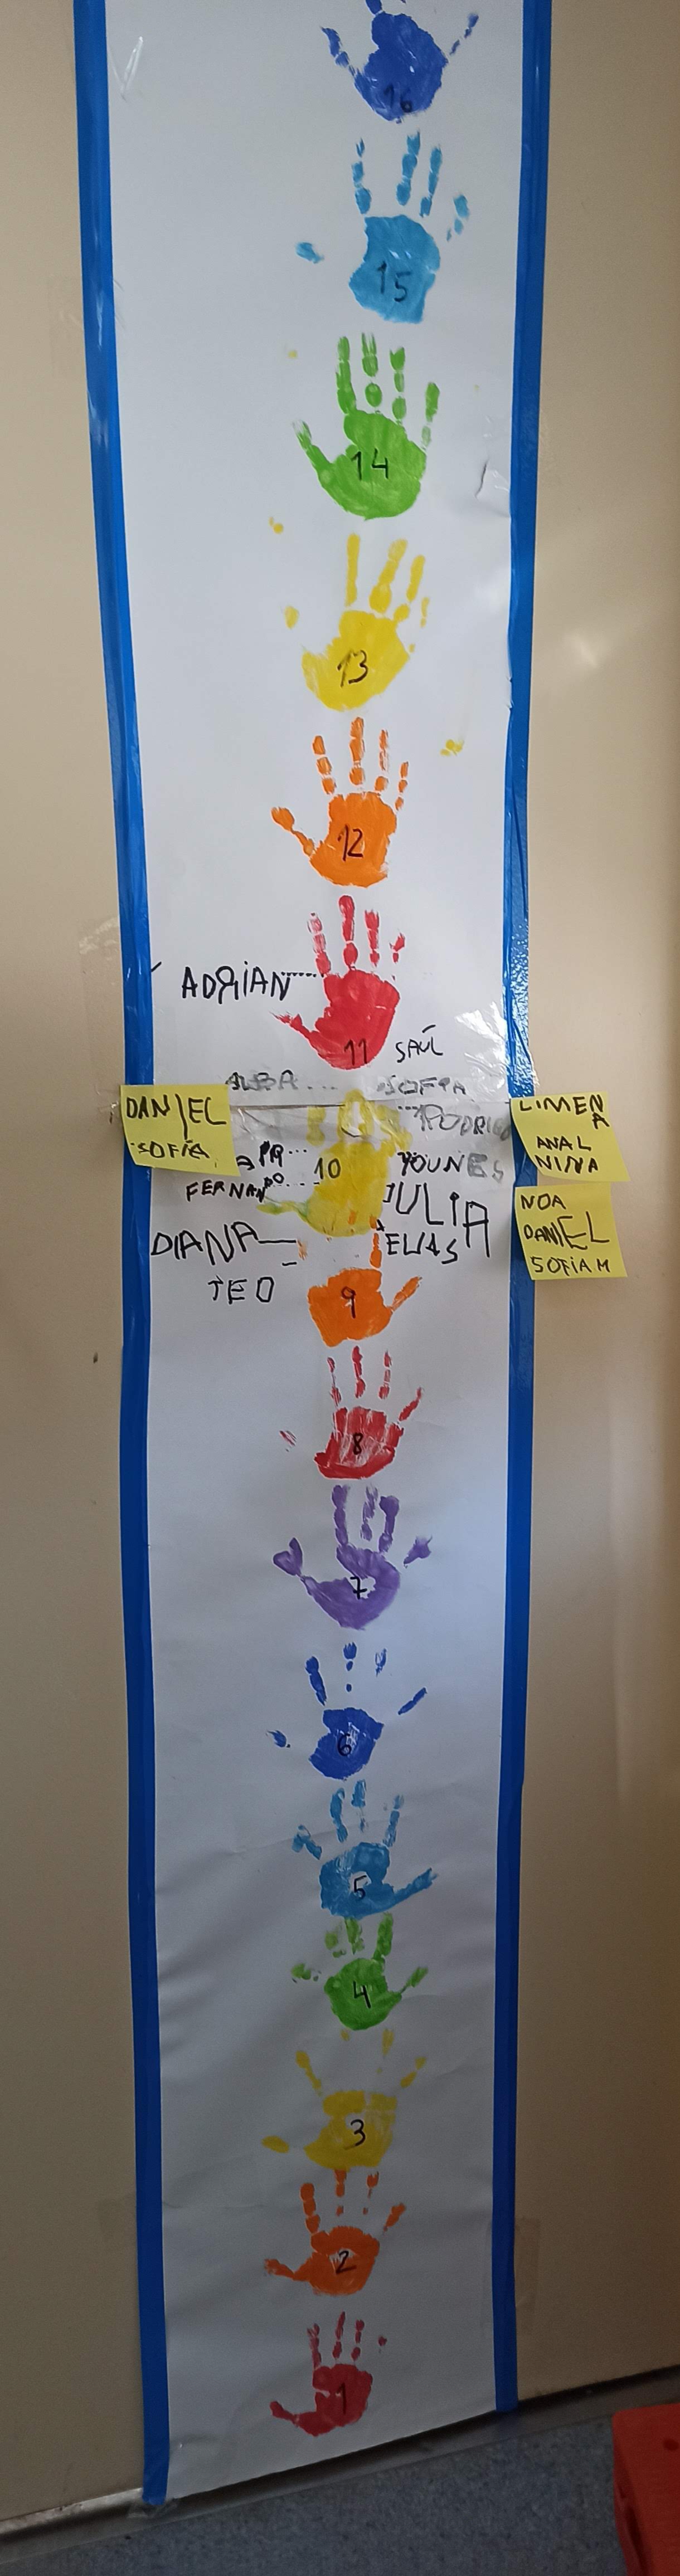 16
15
14
13
12
ADRIAN
11
SAÚL
ALBA
SOFIA
DANIEL
SOFÍA
RODRIGO
LIMENA
ANA L
NINA
10
YOUNES
FERNANDO
JULIA
NOA
DANIEL
SOFIA M
DIANA
ELIAS
TEO
9
8
7
6
5
4
3
2
1